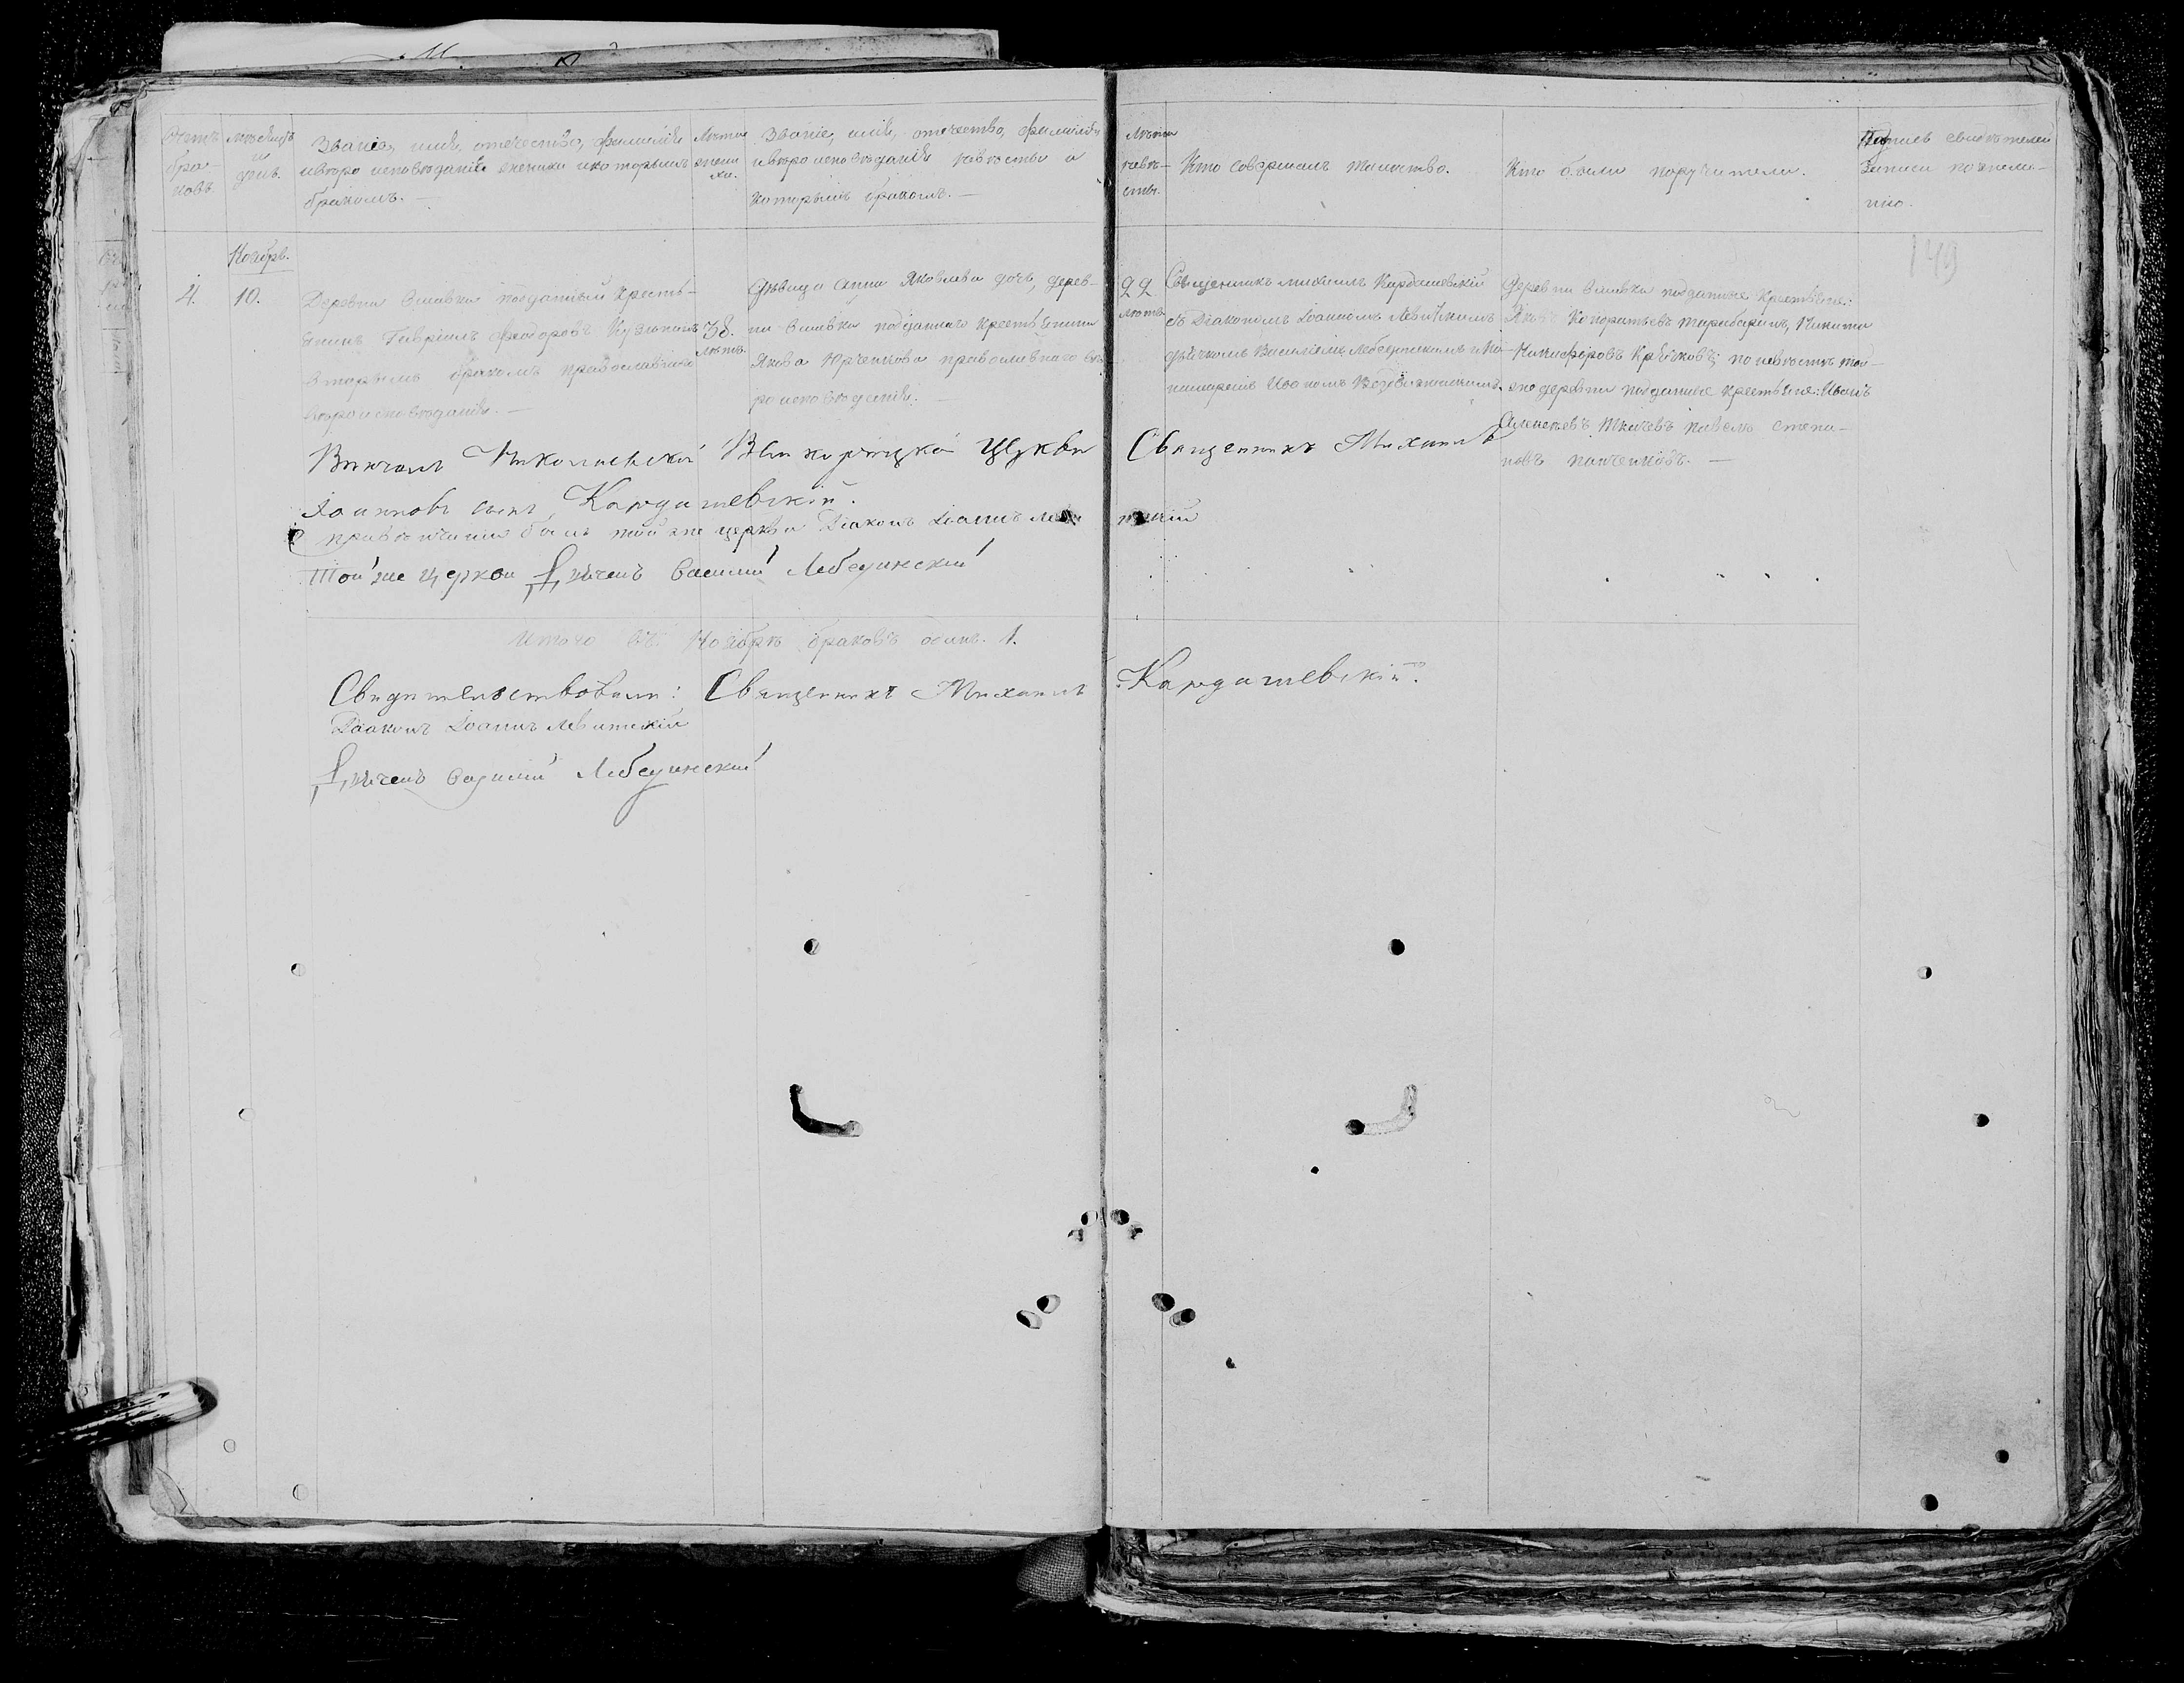 Счетъ бра- ковъ
мѣсяцъ и день.
Званіе, имя, отечество, фамилія
и вѣро исповѣданіе жениха и которымъ
бракомъ. —
Лѣта жени ха.
Званіе, имя, отечество, фамилія
и вѣро исповѣданіе невѣсты и
которымъ бракомъ. —
Лѣта невѣ- сты.
Кто совершалъ таинство.
Кто были поручители.
Подпись свидѣтелей
записи по жела-
нію.
149
Ноябрь.
4.
10.
Деревни подданный крестья-
янинъ Гавріилъ Феодоровъ
вторымъ бракомъ православнаго
вѣроисповѣданія. —
38. лѣтъ.
Дѣвица Анна Яковлева дочь, дерев-
ни подданнаго крестьянина
Якова Юрченкова православнаго вѣ-
роисповѣданія. —
22 лѣтъ
Священникъ Михаилъ Кардашевскій
съ Діакономъ Іоанномъ Левитскимъ
дьячкомъ Василіемъ Лебединскимъ и по-
номаремъ Иваномъ
Деревни подданные крестьяне:
Яковъ Кондратьевъ Никита
Никифоровъ по невѣстѣ той-
же деревни подданные крестьяне: Иванъ
Ткачевъ Павелъ Степа-
новъ Панченковъ. —
Вѣнчалъ Николаевской церкви Священникъ Михаилъ
Іоанновъ сынъ Кардашевскій.
При вѣнчаніи былъ той же церкви Діаконъ Іоаннъ Левитскій
Той же церкви Дьячекъ Василій Лебединскій
Итого въ Ноябрѣ браковъ одинъ. 1.
Свидѣтельствовали: Священникъ Михаилъ Кардашевскій.
Діаконъ Іоаннъ Левитскій
Дьячекъ Василій Лебединскій